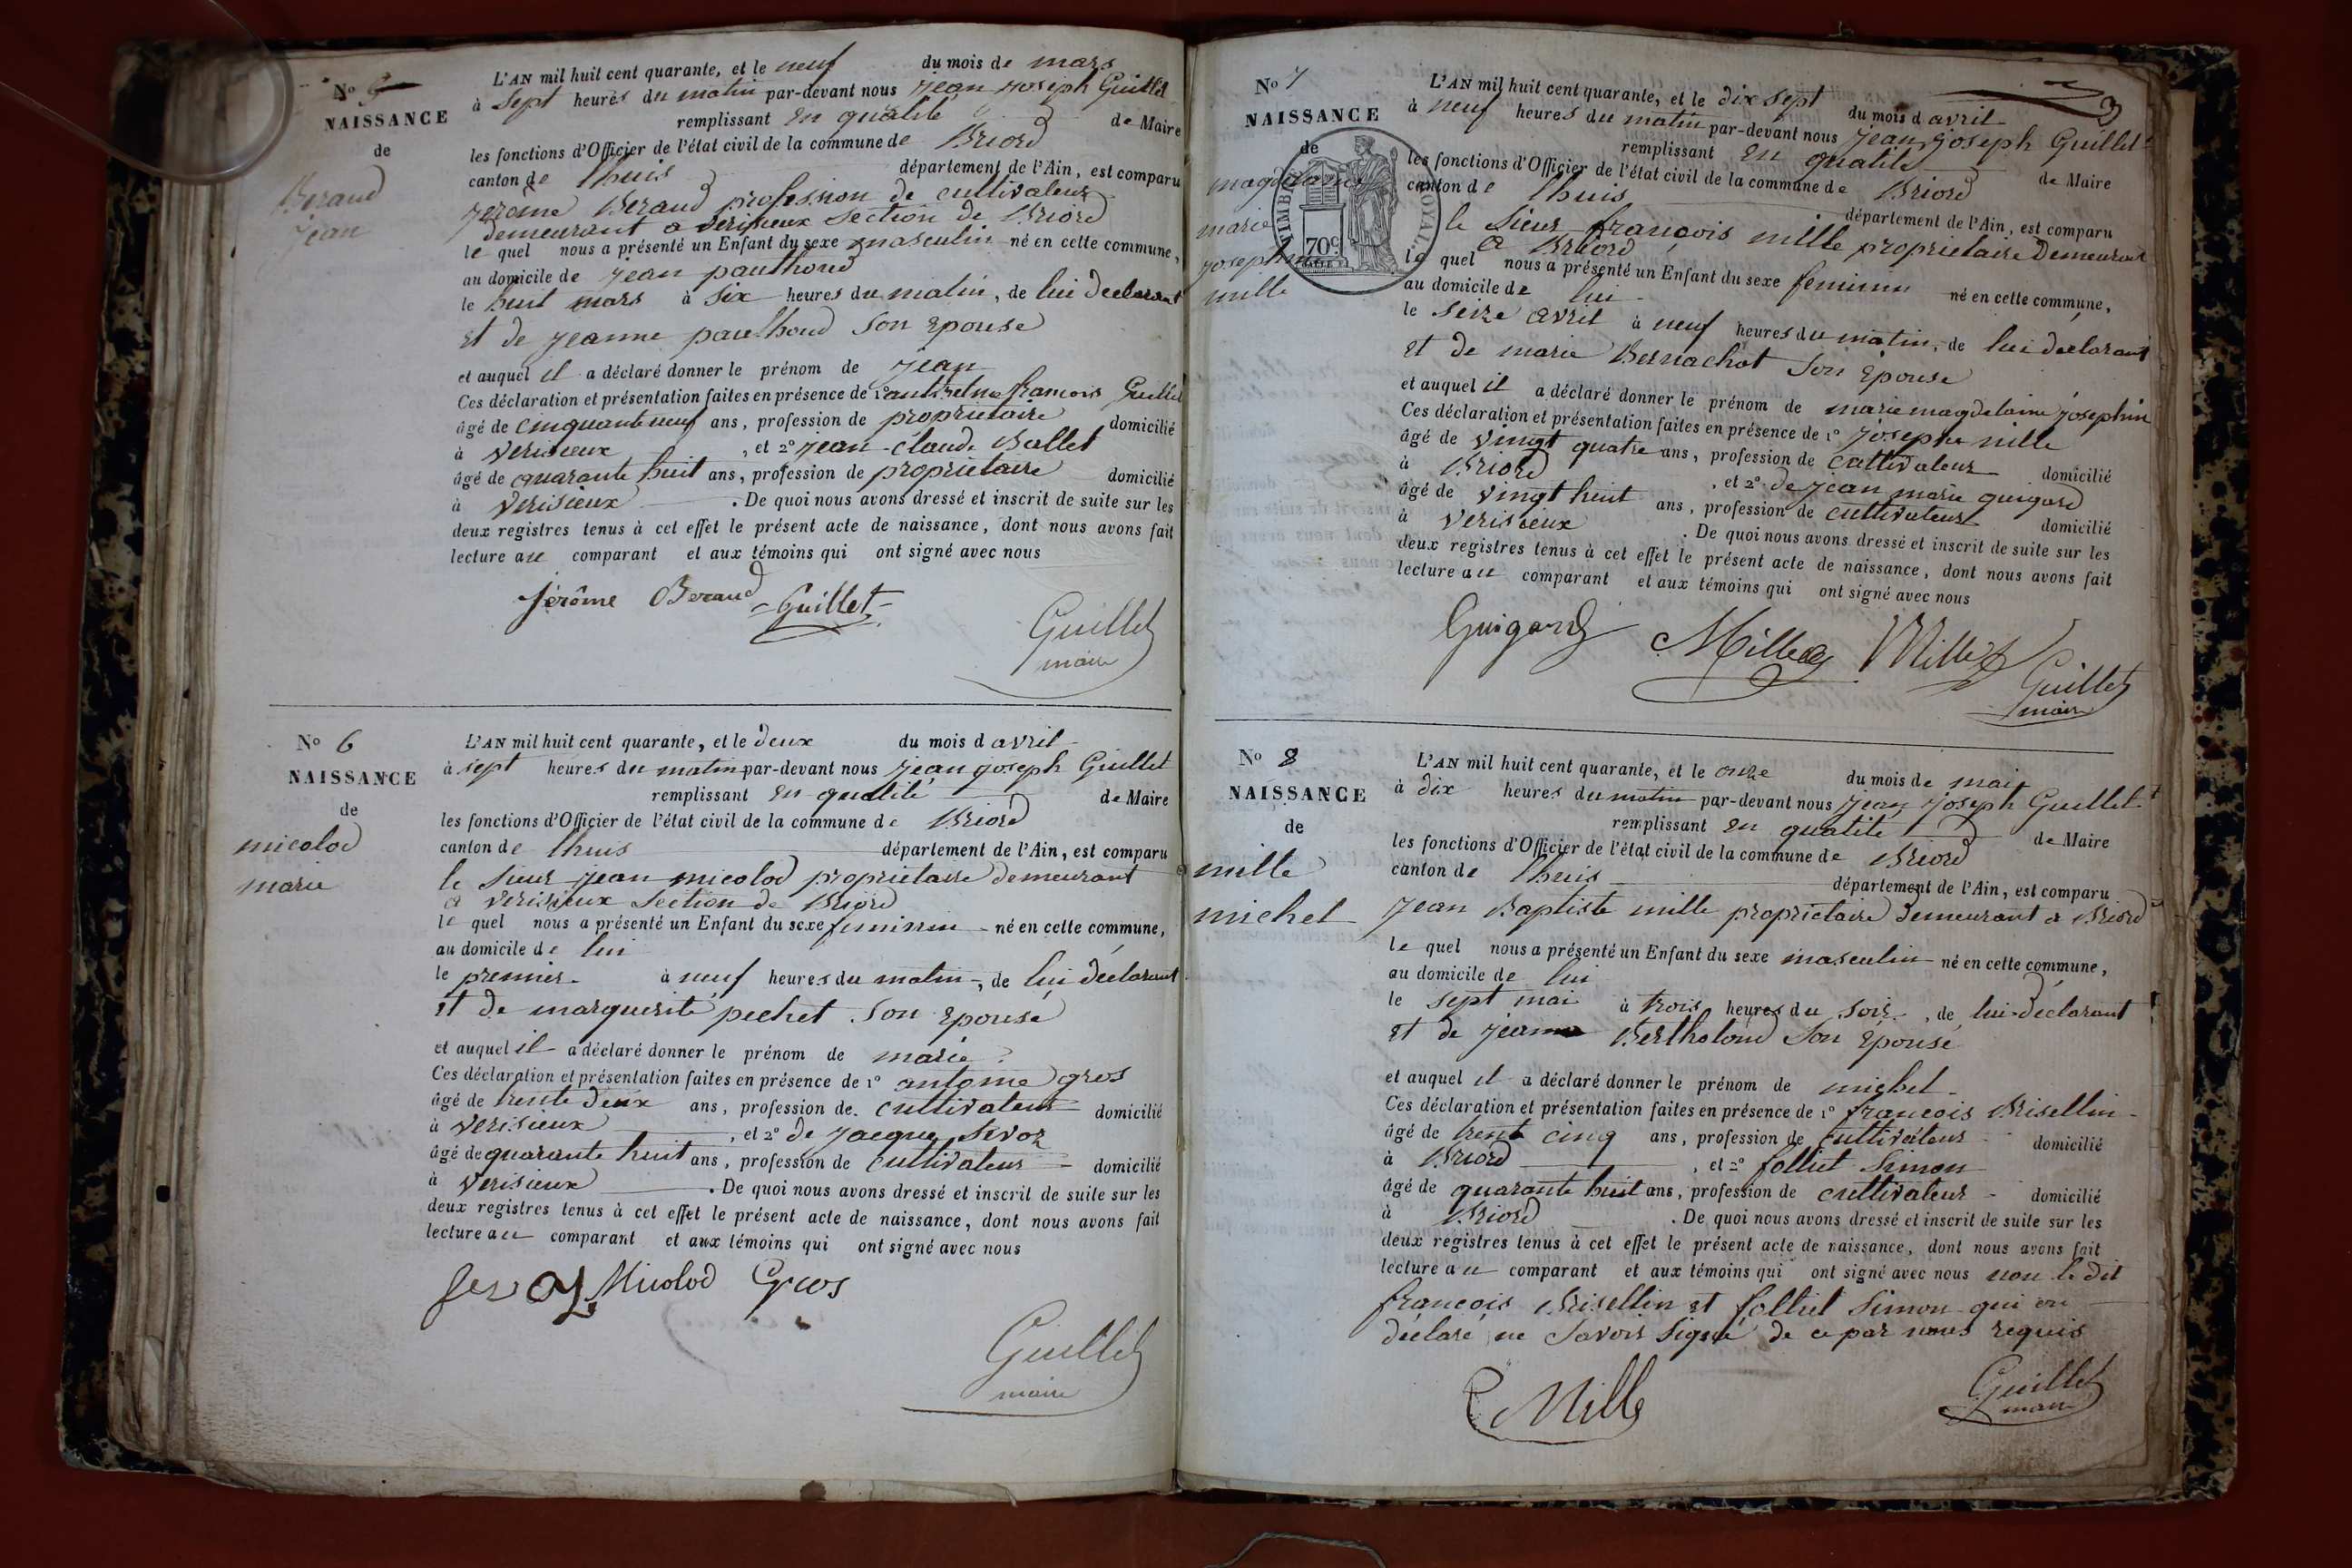 No 5
NAISSANCE
de
Beraud
jean
L'AN mil huit cent quarante, et le neuf du mois de mars
à sept heures du matin par-devant nous jean joseph Guillet
remplissant en qualité de Maire
les fonctions d'Officier de l'état civil de la commune de Briord
canton de lhuis département de l'Ain, est comparu
jerome Beraud profession de cultivateur
demeurant a verisieux section de Briord
le quel nous a présenté un Enfant du sexe masculin né en cette commune,
au domicile de jean paulhoud
le huit mars à six heures du matin, de lui declarant
et de jeanne paulhoud son epouse
et auquel il a déclaré donner le prénom de jean
Ces déclaration et présentation faites en présence de 1° anthelme francois Guillet
âgé de cinquante neuf ans, profession de propriétaire domicilié
à verisieux, et 2° jean-claude Ballet
âgé de quarante huit ans, profession de propriétaire domicilié
à verisieux. De quoi nous avons dressé et inscrit de suite sur les
deux registres tenus à cet effet le présent acte de naissance, dont nous avons fait
lecture au comparant et aux témoins qui ont signé avec nous
jérôme Beraud Guillet
Guillet
maire
No 6
NAISSANCE
de
micolod
marie
L'AN mil huit cent quarante, et le deux du mois d avril
à sept heures du matin par-devant nous jean joseph Guillet
remplissant en qualité de Maire
les fonctions d'Officier de l'état civil de la commune de Briord
canton de lhuis département de l'Ain, est comparu
le sieur jean micolod propriétaire demeurant
a verisieux section de Briord
le quel nous a présenté un Enfant du sexe feminin né en cette commune,
au domicile de lui
le premier à neuf heures du matin, de lui déclarant
et de marguerite pechet son epouse
et auquel il a déclaré donner le prénom de marie
Ces déclaration et présentation faites en présence de 1° antoine gros
âgé de trente deux ans, profession de cultivateur domicilié
à verisieux, et 2° de jacque servoz
âgé de quarante huit ans, profession de cultivateur domicilié
à verisieux. De quoi nous avons dressé et inscrit de suite sur les
deux registres tenus à cet effet le présent acte de naissance, dont nous avons fait
lecture au comparant et aux témoins qui ont signé avec nous
Servoz Micolod Gros
Guillet
maire
3
No 7
NAISSANCE
de
magdelaine
marie
josephine
mille
TIMBRE ROYAL
70c
L'AN mil huit cent quarante, et le dix sept du mois d avril
à neuf heures du matin par-devant nous jean joseph Guillet
remplissant en qualité de Maire
les fonctions d'Officier de l'état civil de la commune de Briord
canton de lhuis département de l'Ain, est comparu
le sieur françois mille proprietaire demeurant
a Briord
le quel nous a présenté un Enfant du sexe feminin né en cette commune,
au domicile de lui
le seize avril à neuf heures du matin, de lui déclarant
et de marie Bernachot son epouse
et auquel il a déclaré donner le prénom de marie magdelaine josephin
Ces déclaration et présentation faites en présence de 1° josephe mille
âgé de vingt quatre ans, profession de cultivateur domicilié
à Briord, et 2° de jean marie guigard
âgé de vingt huit ans, profession de cultivateur domicilié
à verisieux. De quoi nous avons dressé et inscrit de suite sur les
deux registres tenus à cet effet le présent acte de naissance, dont nous avons fait
lecture au comparant et aux témoins qui ont signé avec nous
Guigard Mille Mille
Guillet
maire
No 8
NAISSANCE
de
mille
michel
L'AN mil huit cent quarante, et le onze du mois de mai
à dix heures du matin par-devant nous jean joseph Guillet
remplissant en qualité de Maire
les fonctions d'Officier de l'état civil de la commune de Briord
canton de lhuis département de l'Ain, est comparu
jean Baptiste mille propriétaire demeurant a Briord
le quel nous a présenté un Enfant du sexe masculin né en cette commune,
au domicile de lui
le sept mai à trois heures du soir, de lui déclarant
et de jeanne Bertholond son épouse
et auquel il a déclaré donner le prénom de michel
Ces déclaration et présentation faites en présence de 1° francois Brisellin
âgé de trent cinq ans, profession de cultivateur domicilié
à Briord, et 2° folliet Simon
âgé de quarante huit ans, profession de cultivateur domicilié
à Briord. De quoi nous avons dressé et inscrit de suite sur les
deux registres tenus à cet effet le présent acte de naissance, dont nous avons fait
lecture au comparant et aux témoins qui ont signé avec nous non le dit
francois Brisellin et folliet Simon qui on
déclaré ne savoir signé de ce par nous requis
Mille
Guillet
maire